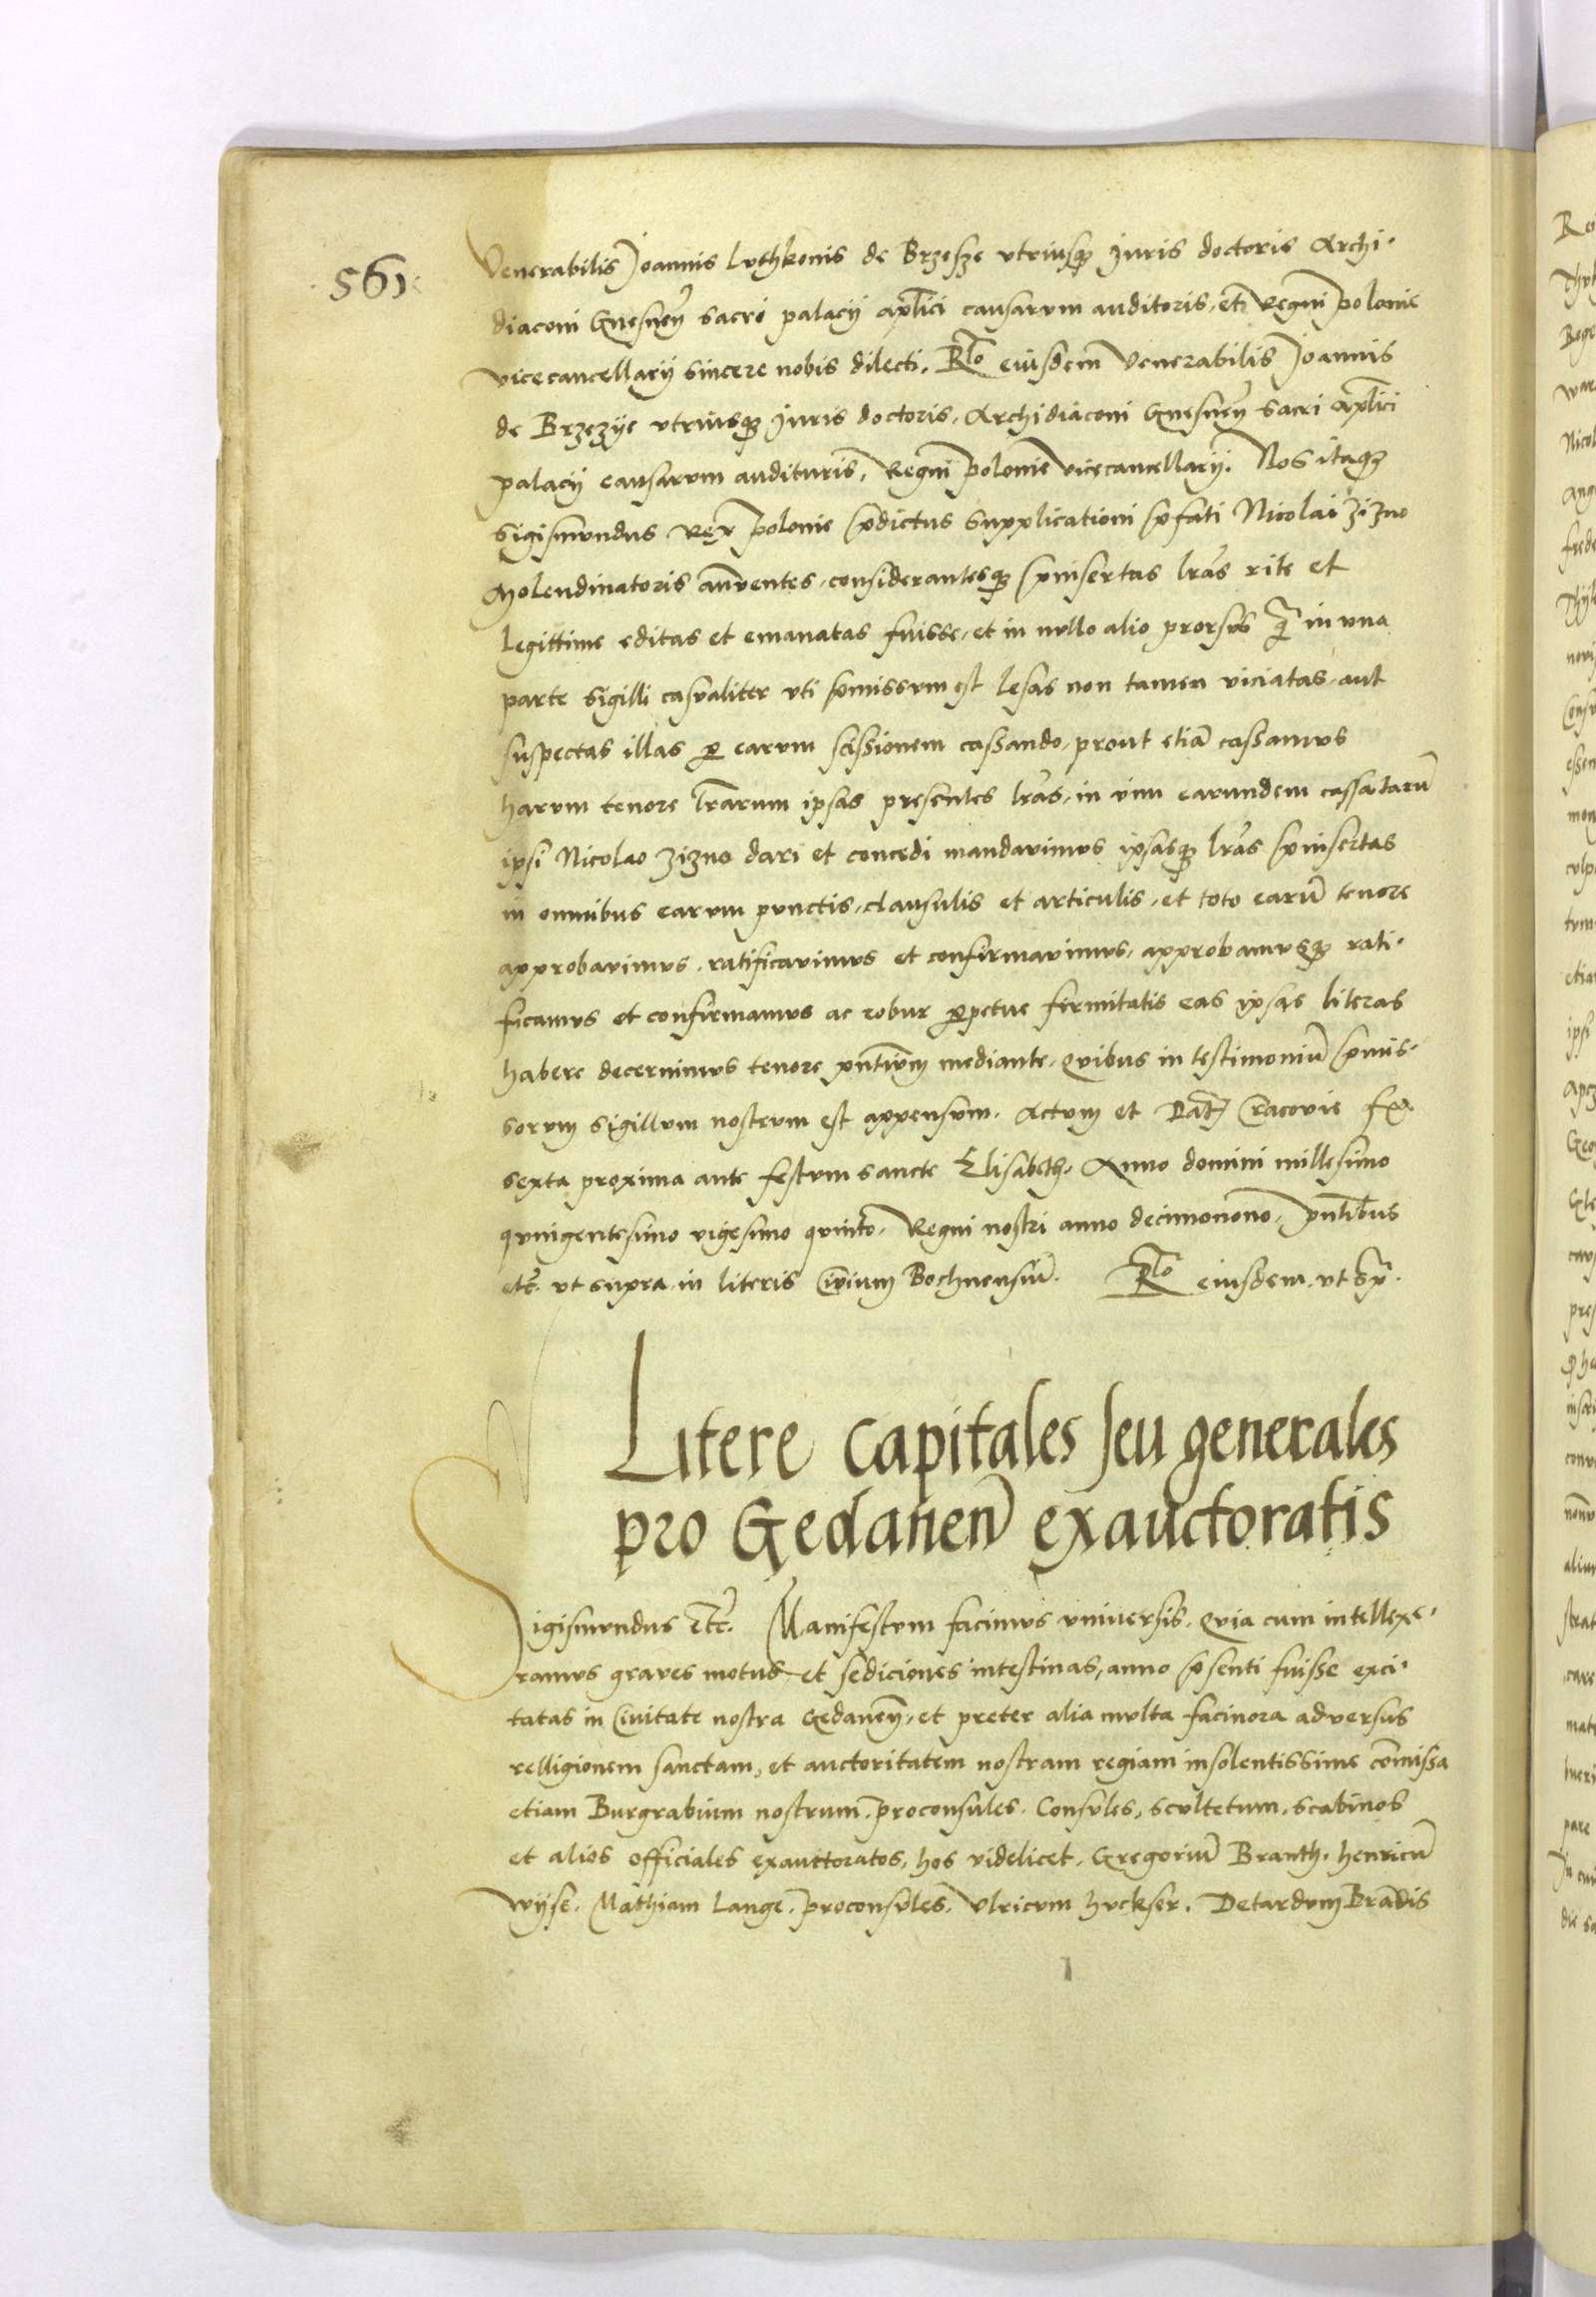 561
Venerabilis Joannis Luthkonis de Brzesze utriusq3 Juris doctoris Archi-
diaconi Gnesnen̄ sacri palacij ap̄lici causarum auditoris, et Regni polonie
vicecancellarij sincere nobis dilecti. R̄lo eiusdem Venerabilis Joannis
de Brzezye utriusq3 Juris doctoris, Archidiaconi Gnesnen̄ sacri ap̄lici
palacij causarum audituris, Regni polonie vicecancellarij. Nos itaq3
Sigismundus Rex polonie p̄dictus supplicationi p̄fati Nicolai Zizno
Molendinatoris annuentes, considerantesq3 p̄insertas l̄ras rite et
legittime editas et emanatas fuisse, et in nullo alio prorsus q̄ in una
parte sigilli casualiter uti p̄missum est lesas non tamen viciatas, aut
suspectas illas p̱ earum scissionem cassando, prout etiā cassamus
harum tenore l̄rarum ipsas presentes l̄ras, in vim earundem cassatarū
ipsi Nicolao Zizno dari et concedi mandavimus ipsasq3 l̄ras p̄insertas
in omnibus earum punctis, clausulis et articulis, et toto earū tenore
approbavimus, ratificavimus et confirmavimus, approbamusq3 rati-
ficamus et confirmamus ac robur p̱petue firmitatis eas ipsas literas
habere decernimus tenore p̄ntium mediante, quibus in testimoniū p̄mis-
sorum sigillum nostrum est appensum. Actum et Dat̄ Cracovie
sexta proxima ante festum sancte Elisabeth. Anno domini millesimo
quingentesimo vigesimo quinto, Regni nostri anno decimonono, p̄ntibus
etc̄. ut supra in literis Civium Bochnensiū. R̄lo eiusdem ut sp̄.
Litere capitales seu generales
pro Gedanen̄ exauctoratis
Sigismundus etc̄. Manifestum facimus universis, quia cum intellexe-
ramus graves motus et sediciones intestinas, anno p̄senti fuisse exci-
tatas in Civitate nostra Gedanen̄, et preter alia multa facinora adversus
relligionem sanctam, et auctoritatem nostram regiam insolentissime cōmissa
etiam Burgrabium nostrum, proconsules, Consules, scultetum, scabinos
et alios officiales exauctoratos, hos videlicet, Gregoriū Branth, henricū
Wyse, Mathiam Lange, proconsules, Ulricum huckser, Detardum Brādis